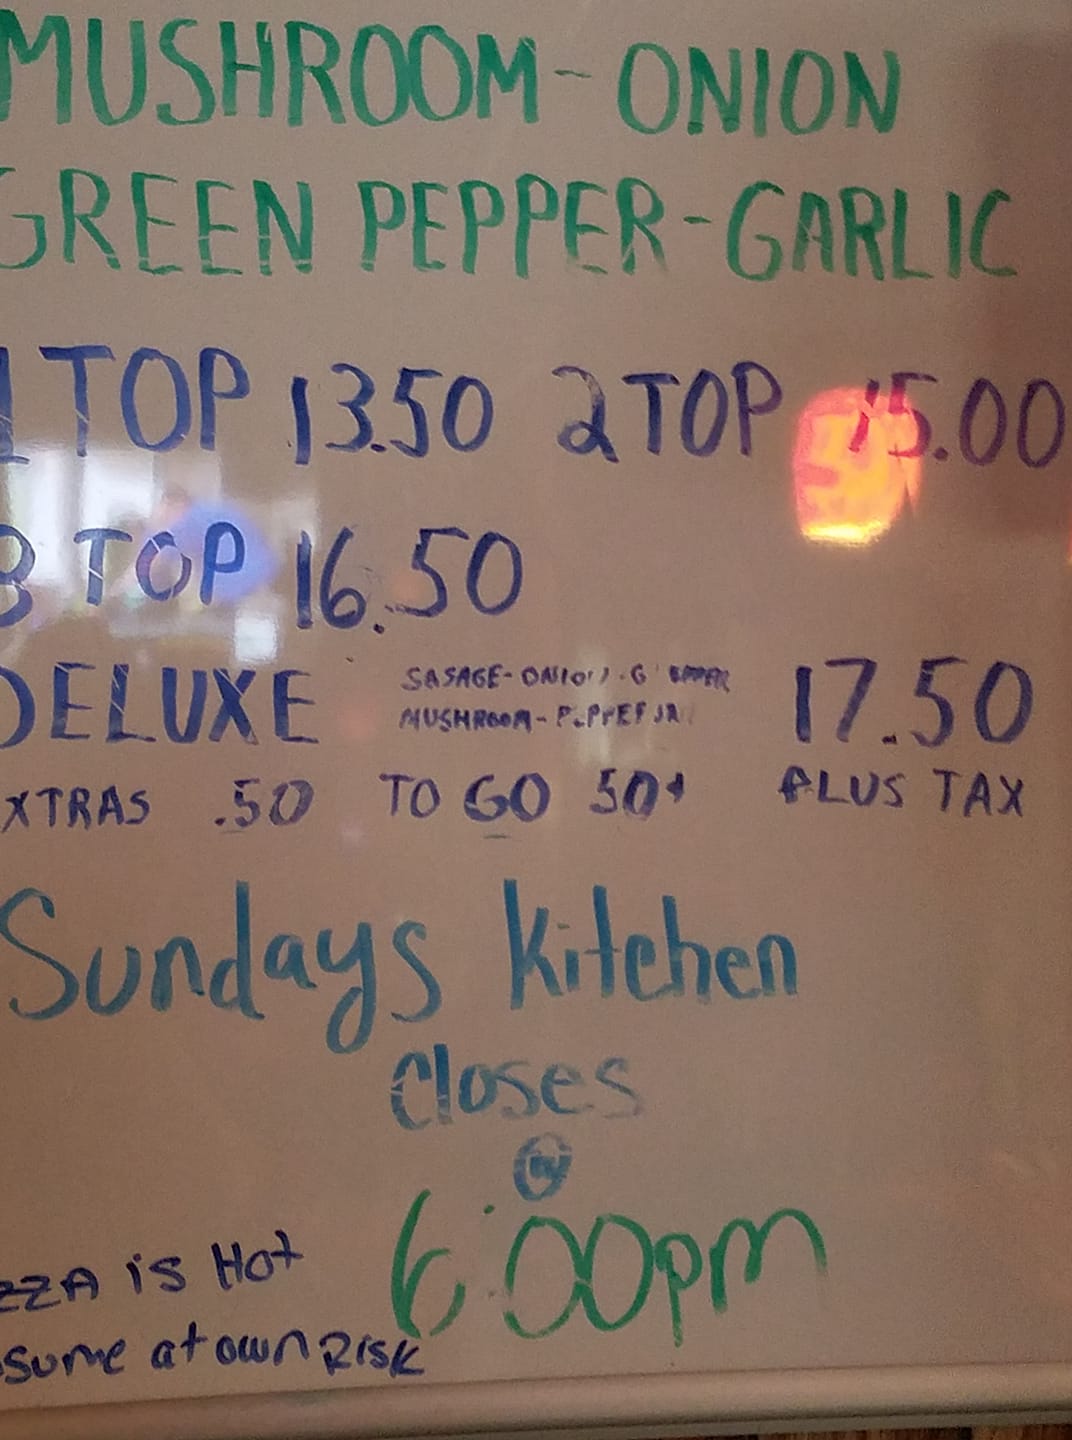 MUSHROOM - ONION
GREEN PEPPER - GARLIC
1 TOP 13.50 2 TOP 15.00
3 TOP 16.50
DELUXE SASAGE - ONION - G 17.50
MUSHROOM -
XTRAS .50 TO GO 50¢ PLUS TAX
Sundays Kitchen
Closes
@
6:00pm
ZZA is Hot
sume at own RISK